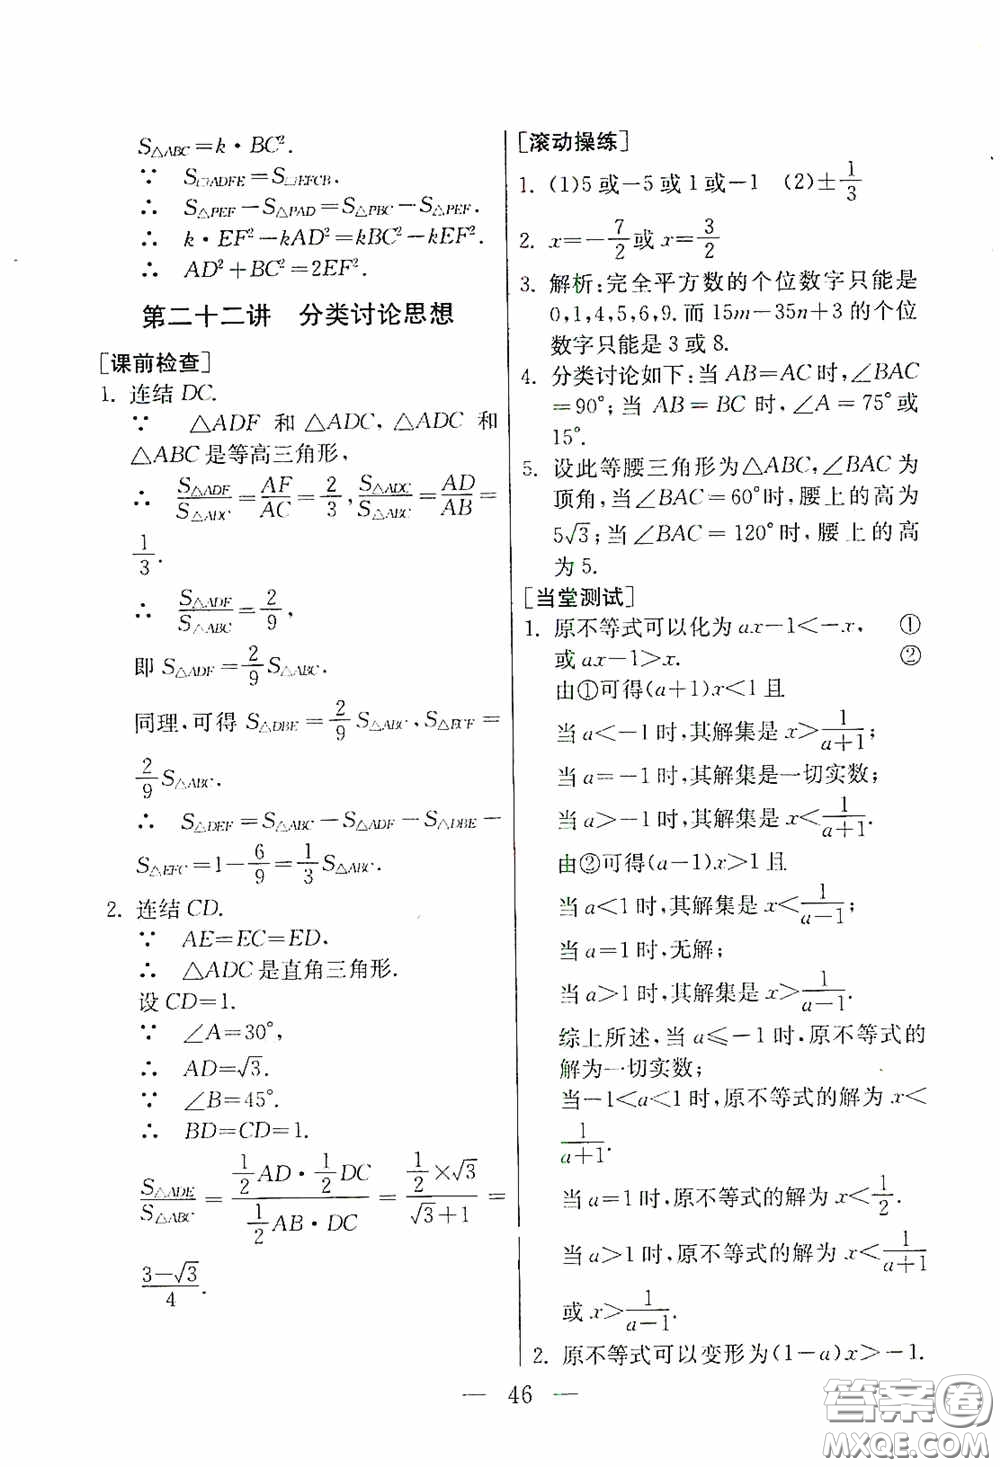 S△ABC=k·BC².
∵ S□ADFE=S□EFCB.
∴ S△PEF-S△PAD=S△PBC-S△PEF.
∴ k·EF²-kAD²=kBC²-kEF².
∴ AD²+BC²=2EF².
第二十二讲 分类讨论思想
[课前检查]
1. 连结 DC.
∵ △ADF 和 △ADC, △ADC 和
△ABC 是等高三角形,
∴ S△ADF/S△ADC=AF/AC=2/3, S△ADC/S△ABC=AD/AB=
1/3.
∴ S△ADF/S△ABC=2/9,
即 S△ADF=2/9 S△ABC.
同理,可得 S△DBE=2/9 S△ABC, S△ECF=
2/9 S△ABC.
∴ S△DEF=S△ABC-S△ADF-S△DBE-
S△EFC=1-6/9=1/3 S△ABC.
2. 连结 CD.
∵ AE=EC=ED.
∴ △ADC 是直角三角形.
设 CD=1.
∵ ∠A=30°,
∴ AD=√3.
∵ ∠B=45°.
∴ BD=CD=1.
S△ADE/S△ABC=(1/2 AD·1/2 DC)/(1/2 AB·DC)=(1/2×√3)/(√3+1)=
(3-√3)/4.
[滚动操练]
1. (1)5 或-5 或 1 或-1 (2)±1/3
2. x=-7/2 或 x=3/2
3. 解析:完全平方数的个位数字只能是
0,1,4,5,6,9. 而 15m-35n+3 的个位
数字只能是 3 或 8.
4. 分类讨论如下:当 AB=AC 时,∠BAC
=90°;当 AB=BC 时,∠A=75°或
15°.
5. 设此等腰三角形为△ABC,∠BAC 为
顶角,当∠BAC=60°时,腰上的高为
5√3;当∠BAC=120°时,腰上的高
为 5.
[当堂测试]
1. 原不等式可以化为 ax-1<-x, ①
或 ax-1>x. ②
由①可得(a+1)x<1 且
当 a<-1 时,其解集是 x>1/(a+1);
当 a=-1 时,其解集是一切实数;
当 a>-1 时,其解集是 x<1/(a+1).
由②可得(a-1)x>1 且
当 a<1 时,其解集是 x<1/(a-1);
当 a=1 时,无解;
当 a>1 时,其解集是 x>1/(a-1).
综上所述,当 a≤-1 时,原不等式的
解为一切实数;
当-1<a<1 时,原不等式的解为 x<
1/(a+1).
当 a=1 时,原不等式的解为 x<1/2.
当 a>1 时,原不等式的解为 x<1/(a+1)
或 x>1/(a-1).
2. 原不等式可以变形为(1-a)x>-1.
— 46 —
答案卷
MXQE.COM